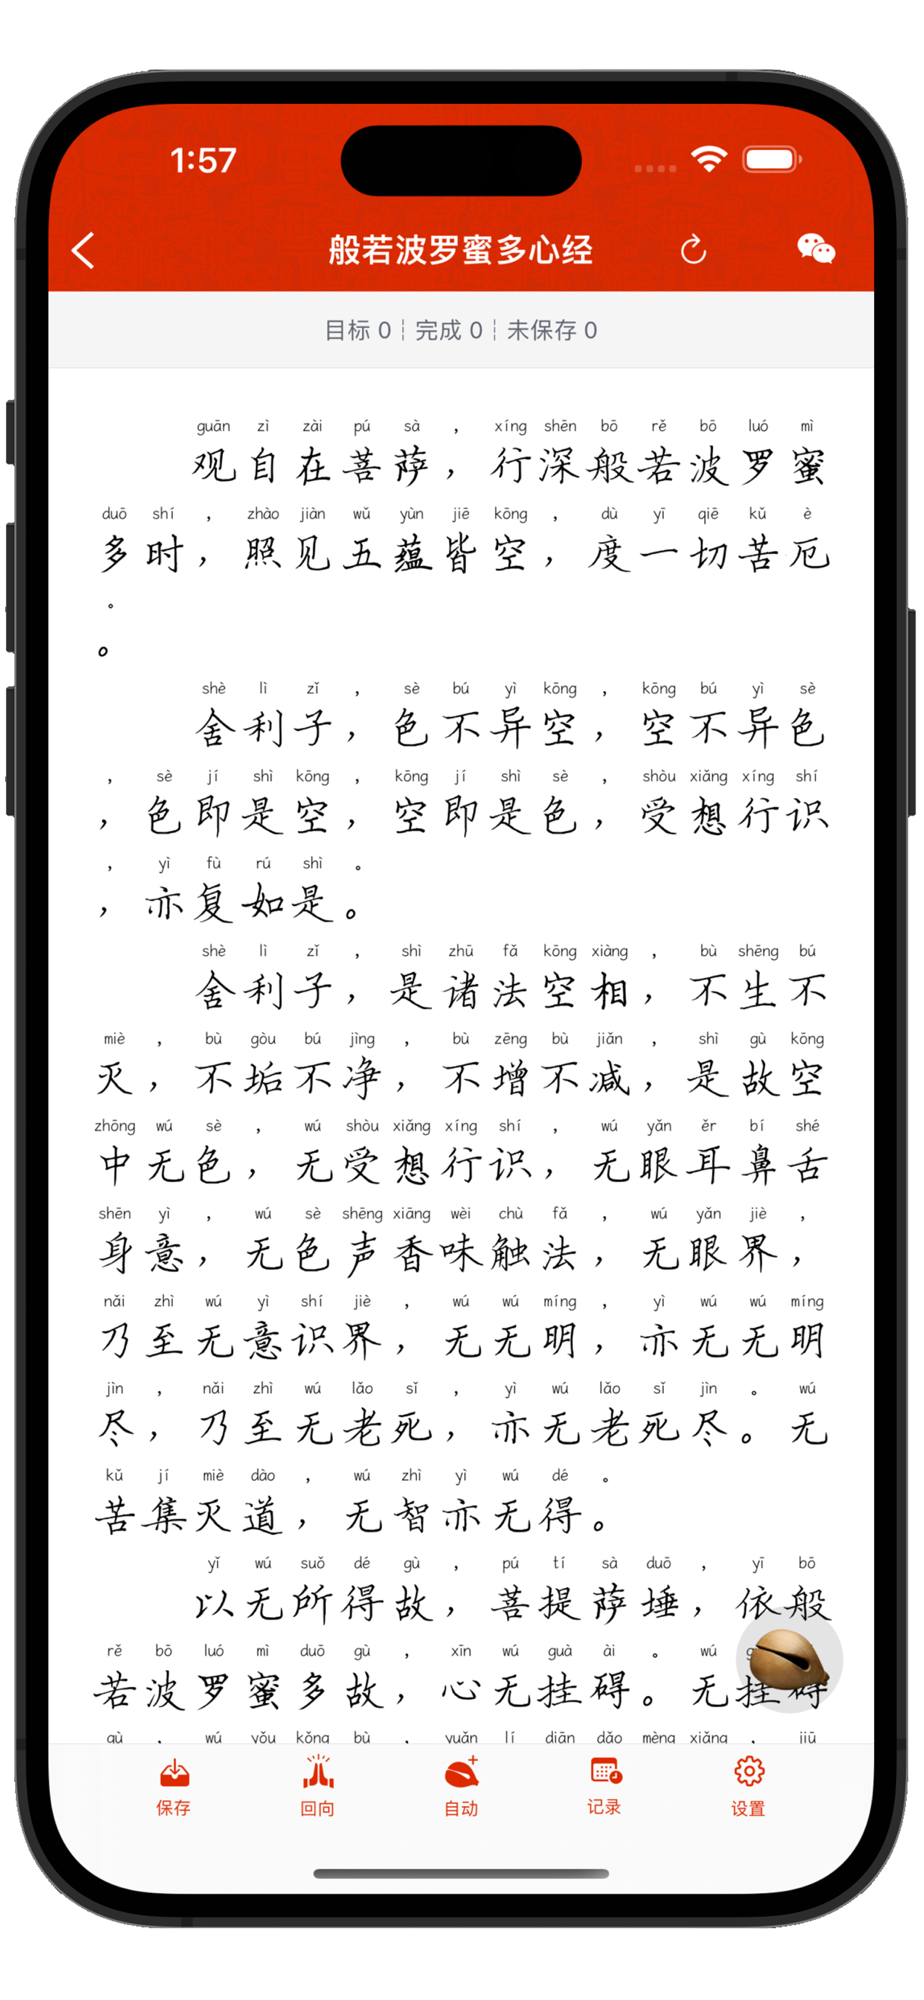 1:57
般若波罗蜜多心经
目标 0 ¦ 完成 0 ¦ 未保存 0
guān zì zài pú sà ， xíng shēn bō rě bō luó mì
观自在菩萨，行深般若波罗蜜
duō shí ， zhào jiàn wǔ yùn jiē kōng ， dù yī qiē kǔ è
多时，照见五蕴皆空，度一切苦厄
。
。
shè lì zǐ ， sè bú yì kōng ， kōng bú yì sè
舍利子，色不异空，空不异色
， sè jí shì kōng ， kōng jí shì sè ， shòu xiǎng xíng shí
，色即是空，空即是色，受想行识
， yì fù rú shì 。
，亦复如是。
shè lì zǐ ， shì zhū fǎ kōng xiàng ， bù shēng bú
舍利子，是诸法空相，不生不
miè ， bù gòu bú jìng ， bù zēng bù jiǎn ， shì gù kōng
灭，不垢不净，不增不减，是故空
zhōng wú sè ， wú shòu xiǎng xíng shí ， wú yǎn ěr bí shé
中无色，无受想行识，无眼耳鼻舌
shēn yì ， wú sè shēng xiāng wèi chù fǎ ， wú yǎn jiè ，
身意，无色声香味触法，无眼界，
nǎi zhì wú yì shí jiè ， wú wú míng ， yì wú wú míng
乃至无意识界，无无明，亦无无明
jìn ， nǎi zhì wú lǎo sǐ ， yì wú lǎo sǐ jìn 。 wú
尽，乃至无老死，亦无老死尽。无
kǔ jí miè dào ， wú zhì yì wú dé 。
苦集灭道，无智亦无得。
yǐ wú suǒ dé gù ， pú tí sà duǒ ， yī bō
以无所得故，菩提萨埵，依般
rě bō luó mì duō gù ， xīn wú guà ài 。 wú
若波罗蜜多故，心无挂碍。无挂碍
gù ， wú yǒu kǒng bù ， yuǎn lí diān dǎo mèng xiǎng ， jiū
保存 回向 自动 记录 设置